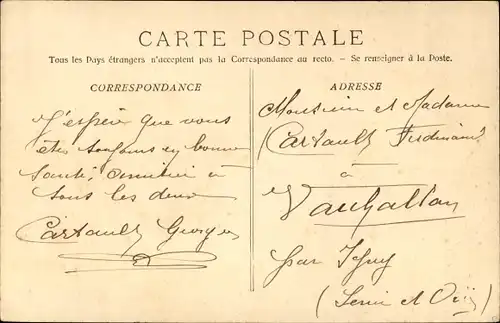 CARTE POSTALE
Tous les Pays étrangers n'acceptent pas la Correspondance au recto. – Se renseigner à la Poste.
CORRESPONDANCE
J'espère que vous
êtes toujours en bonne
santé, amitiés à
tous les deux
Cartault Georges
ADRESSE
Monsieur et Madame
Cartault Ferdinand
à
Vauhallan
par Igny
(Seine et Oise)